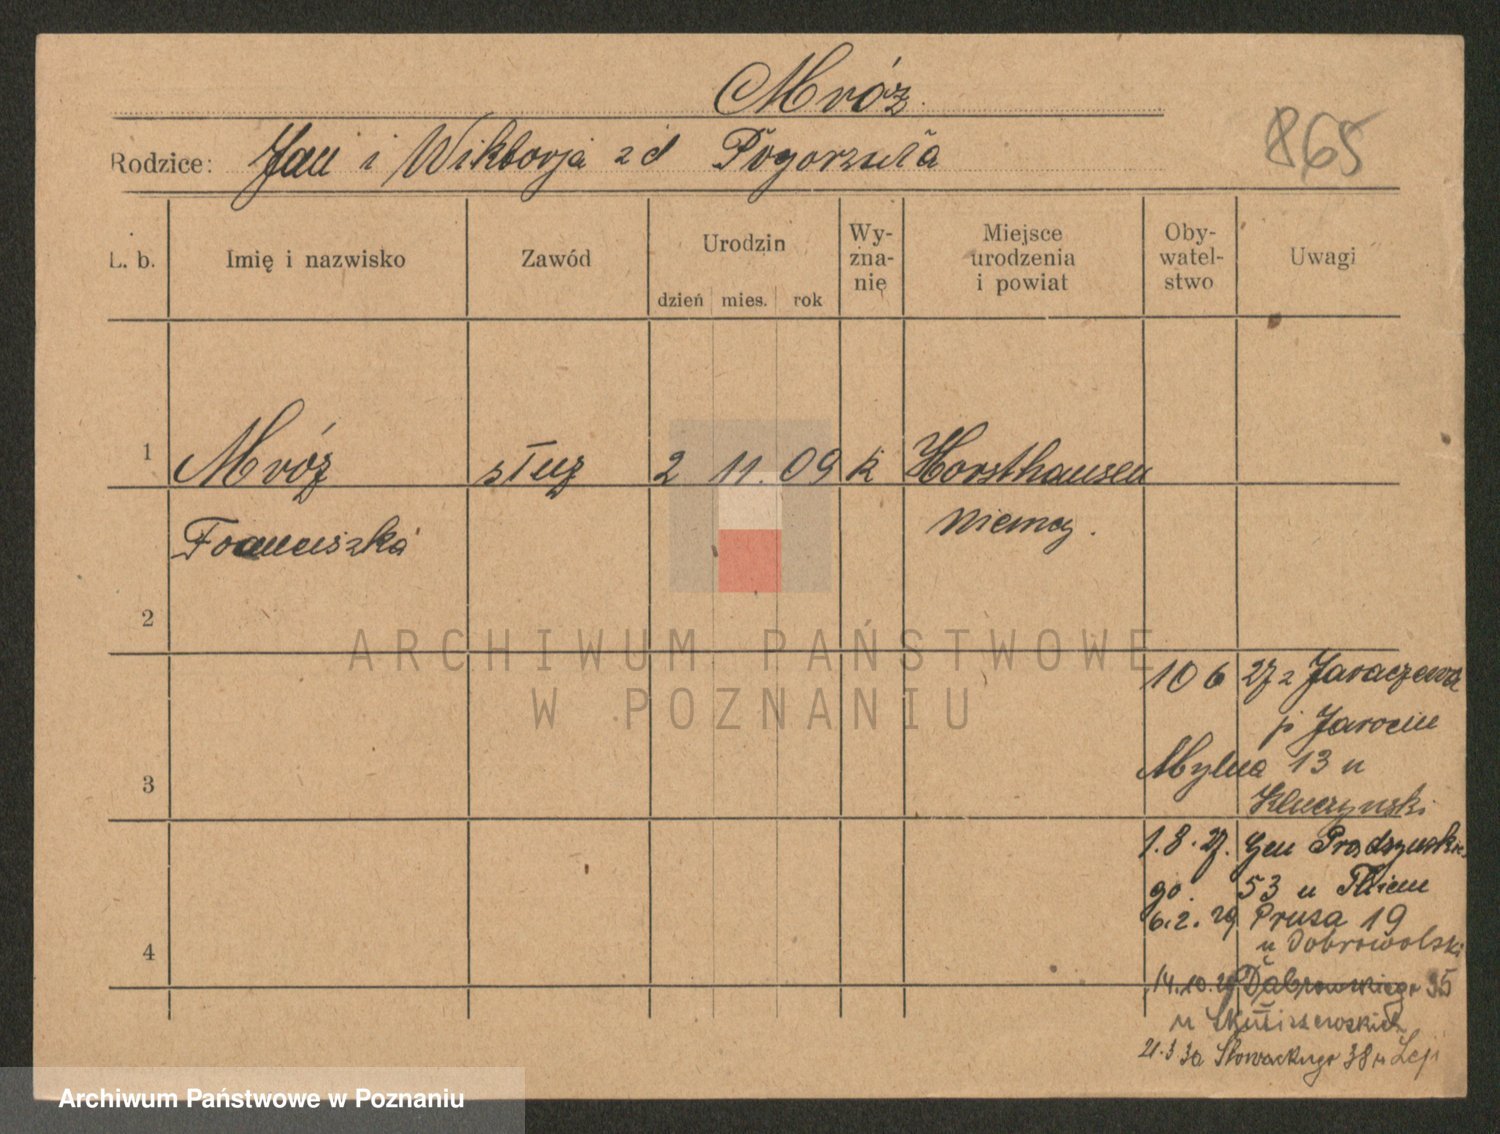 Mróz.
865
Rodzice: Jan i Wiktorja z d Pogorzała
L. b. Imię i nazwisko Zawód Urodzin dzień mies. rok Wy-zna-nię Miejsce urodzenia i powiat Oby-watel-stwo Uwagi
1 Mróz służ 2 11. 09 k Horsthausen
Franciszka Niemcy.
2
ARCHIWUM PAŃSTWOWE
W POZNANIU
10 6 27 z Jaraczewa
p Jarocin
Mylna 13 u
3 Kluczynski
1. 8. 27. Gen Prądzynskie
go. 53 u Thiem
6. 2. 29 Prusa 19
4 u Dobrowolski
14. 10. 29 Dąbrowskiego 35
u
21. 3 30 Słowackiego 38 u
Archiwum Państwowe w Poznaniu